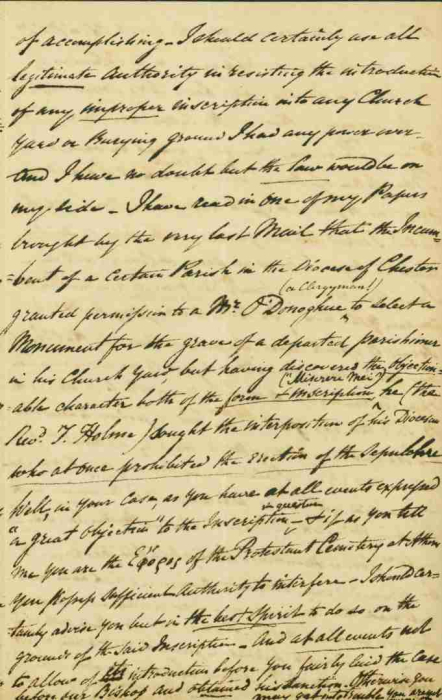 of accomplishing – I should certainly use all
legitimate Authority in resisting the introduction
of any improper inscription into any Church
Yard or Burying ground I had any power over –
And I have no doubt but the law would be on
my side – I have read in one of my Papers
brought by the very last Mail that the Incum-
=bent of a certain Parish in the Diocese of Chester
(a Clergyman!)
granted permission to a Mr. O'Donoghue to select a
Monument for the grave of a departed parishioner
in his Church Yard, but having discovered the objection=
("Miserere Mei")
able character both of the form & inscription, he (the
Revd. T. Holme) sought the interposition of his Diocesan
who at once prohibited the erection of the Sepulchre
Well, in your Case, as you have at all events expressed
in question
"a great objection" to the Inscription – & if as you tell
me you are the of the Protestant Cemetery at Athens
You possess sufficient Authority to interfere – I should cer-
tainly advise you but in the best Spirit to do so on the
grounds of the said Inscription – And at all events not
to allow of its introduction before You fairly laid the Case
before our Bishop and obtained his Sanction. Otherwise you
may extend trouble you are not